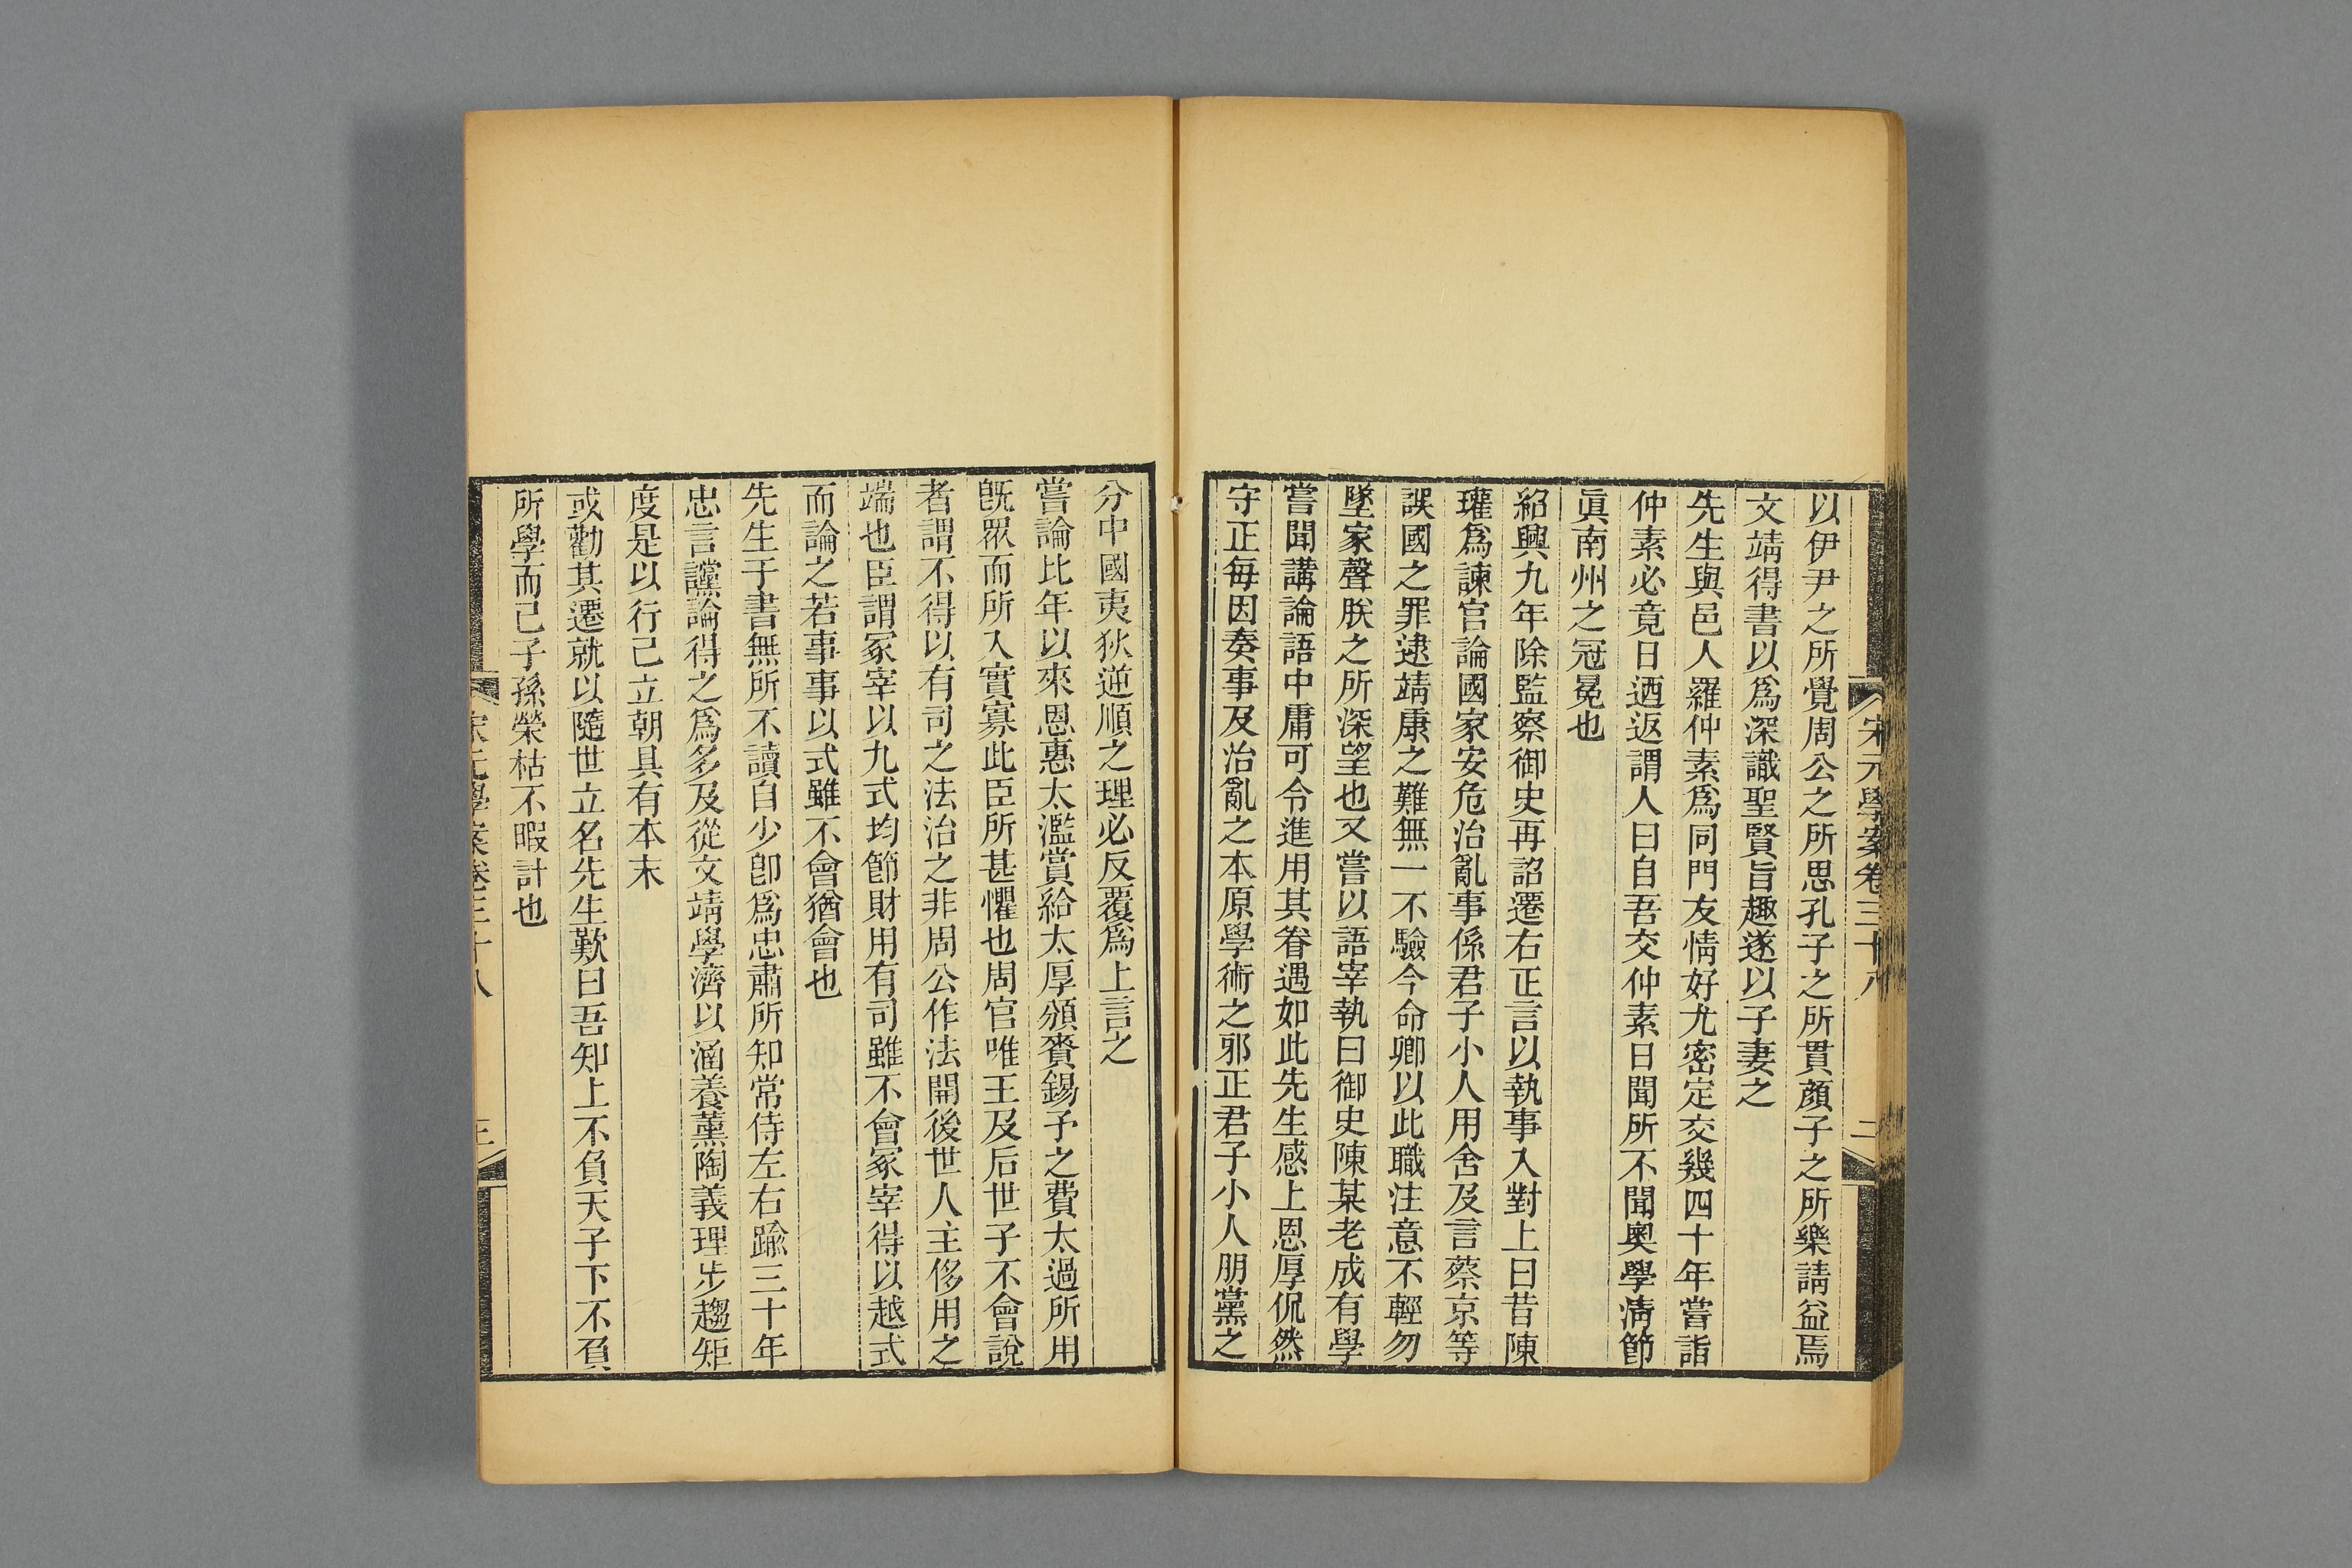 宋元學案卷三十八
二
以伊尹之所覺周公之所思孔子之所貫顏子之所樂請益焉
文靖得書以爲深識聖賢旨趣遂以子妻之
先生與邑人羅仲素爲同門友情好尤密定交幾四十年嘗詣
仲素必竟日迺返謂人曰自吾交仲素日聞所不聞奧學淸節
眞南州之冠冕也
紹興九年除監察御史再詔遷右正言以執事入對上曰昔陳
瓘爲諫官論國家安危治亂事係君子小人用舍及言蔡京等
誤國之罪逮靖康之難無一不驗今命卿以此職注意不輕勿
墜家聲朕之所深望也又嘗以語宰執曰御史陳某老成有學
嘗聞講論語中庸可令進用其眷遇如此先生感上恩厚侃然
守正每因奏事及治亂之本原學術之邪正君子小人朋黨之
分中國夷狄逆順之理必反覆爲上言之
嘗論比年以來恩惠太濫賞給太厚頒賚錫予之費太過所用
旣眾而所入實寡此臣所甚懼也周官唯王及后世子不會說
者謂不得以有司之法治之非周公作法開後世人主侈用之
端也臣謂冢宰以九式均節財用有司雖不會冢宰得以越式
而論之若事事以式雖不會猶會也
先生于書無所不讀自少卽爲忠肅所知常侍左右踰三十年
忠言讜論得之爲多及從文靖學濟以涵養薰陶義理步趨矩
度是以行己立朝具有本末
或勸其遷就以隨世立名先生歎曰吾知上不負天子下不負
所學而已子孫榮枯不暇計也
宋元學案卷三十八
三